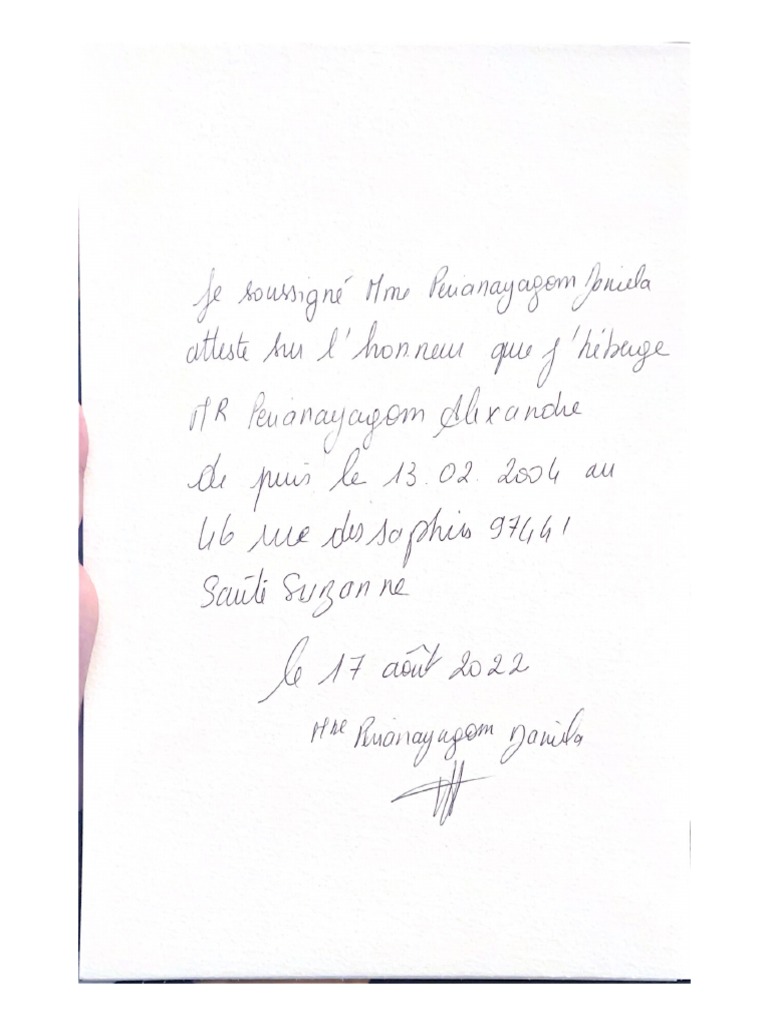 Je soussigné Mme Perianayagom Daniela
atteste sur l'honneur que j'héberge
MR Perianayagom Alexandre
de puis le 13.02.2004 au
46 rue des saphirs 97441
Sainte Suzanne
le 17 août 2022
Mme Perianayagom Daniela